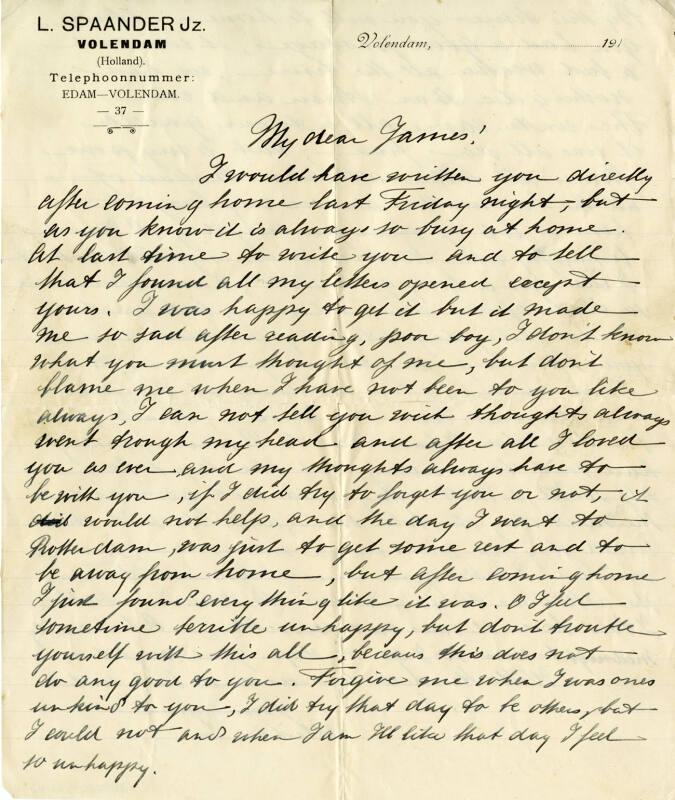 L. SPAANDER Jz.
VOLENDAM
(Holland).
Telephoonnummer:
EDAM—VOLENDAM.
— 37 —
Volendam, 191
My dear James!
I would have written you directly
after coming home last Friday night, but
as you know it is always so busy at home.
At last time to write you and to tell
that I found all my letters opened except
yours. I was happy to get it but it made
me so sad after reading, poor boy, I don't know
what you must thought of me, but don't
blame me when I have not been to you like
always, I can not tell you wich thoughts always
went trough my head and after all I loved
you as ever and my thoughts always have to
be with you, if I did try to forget you or not, it
did would not help, and the day I went to
Rotterdam, was just to get some rest and to
be away from home, but after coming home
I just found everything like it was. O I feel
sometime terrible unhappy, but don't trouble
yourself with this all, becaus this does not
do any good to you. Forgive me when I was ones
unkind to you, I did try that day to be others, but
I could not and when I am like that day I feel
so unhappy.